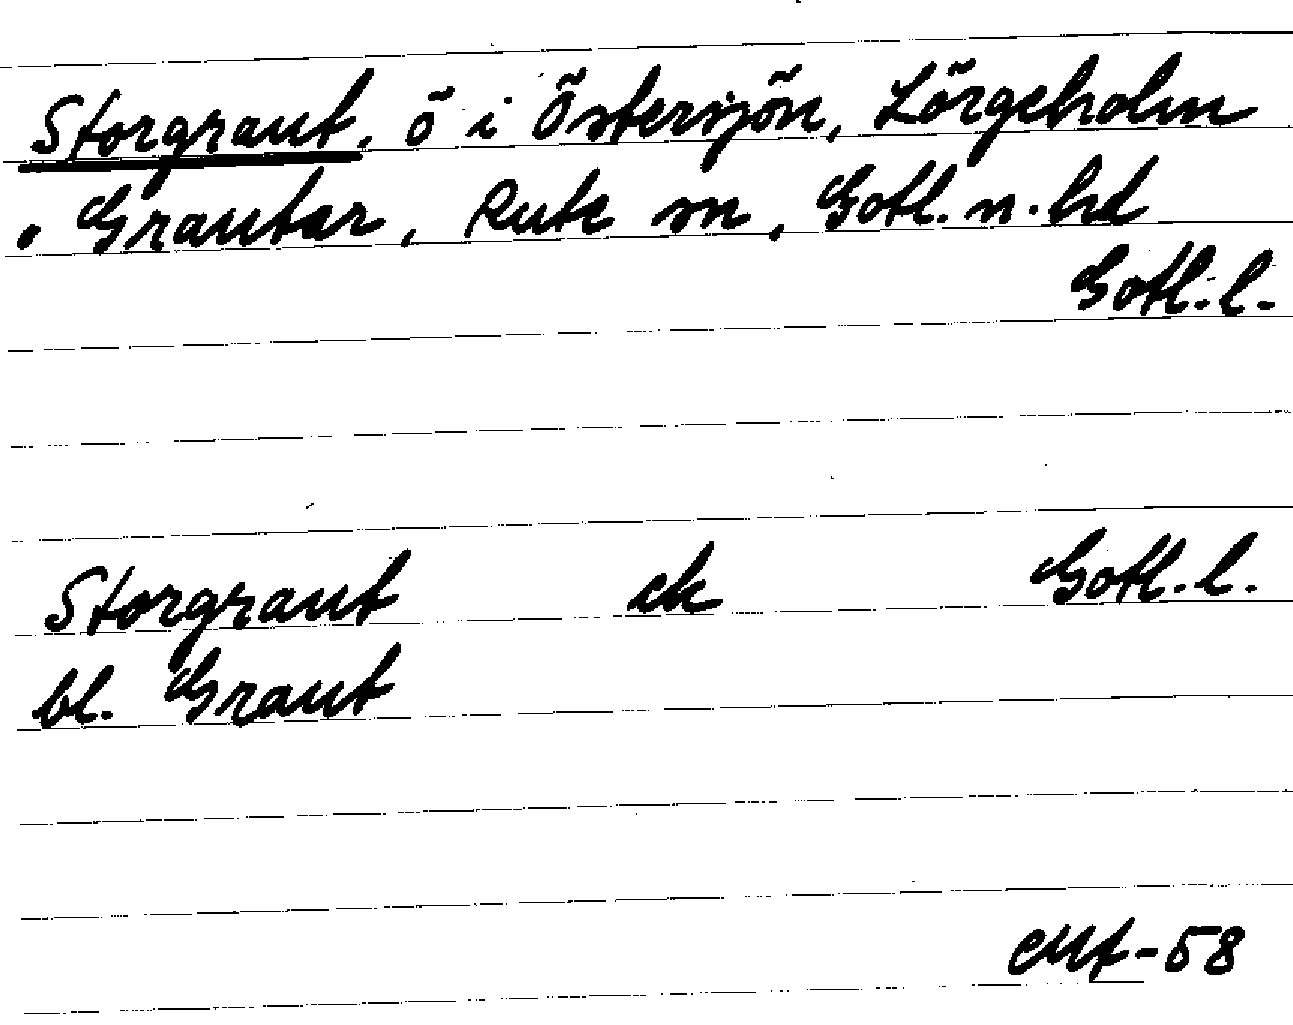 Storgraut, ö i Östersjön, Lörgeholm
o. Grautar, Rute sn, Gotl. n. hd
Gotl. l.
Storgraut ek Gotl. l.
bl. Graut
-58